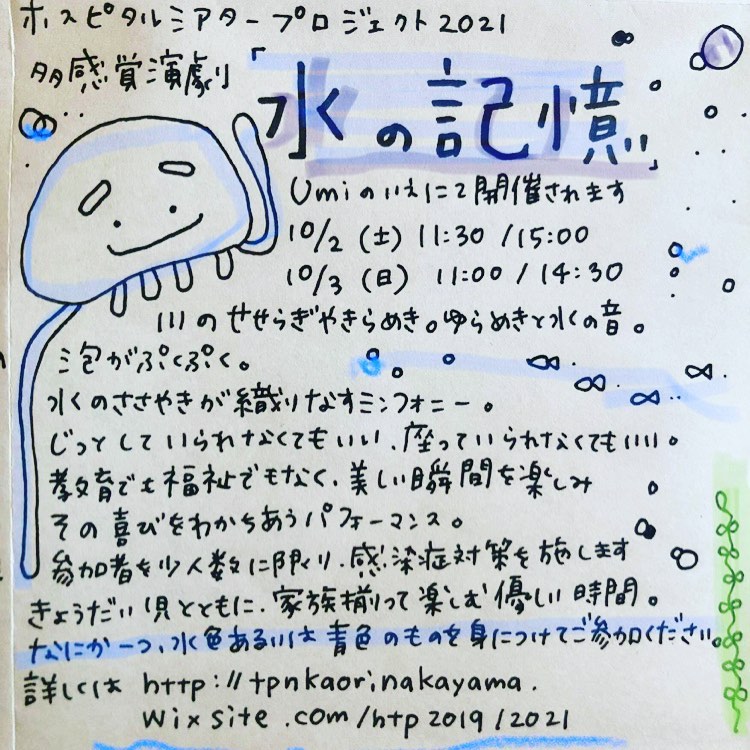 ホスピタルシアタープロジェクト2021
多感覚演劇「水の記憶」
Umiのいえにて開催されます
10/2(土)11:30/15:00
10/3(日)11:00/14:30
川のせせらぎやきらめき。ゆらめきと水の音。
泡がぷくぷく。
水のささやきが織りなすシンフォニー。
じっとしていられなくてもいい、座っていられなくてもいい。
教育でも福祉でもなく、美しい瞬間を楽しみ
その喜びをわかちあうパフォーマンス。
参加者を少人数に限り、感染症対策を施します
きょうだい児とともに、家族揃って楽しむ優しい時間。
なにか一つ、水色あるいは青色のものを身につけてご参加ください。
詳しくは http://tpnkaorinakayama.
wixsite.com/htp2019/2021